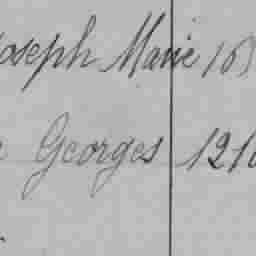 Joseph Marie 16
Georges 121